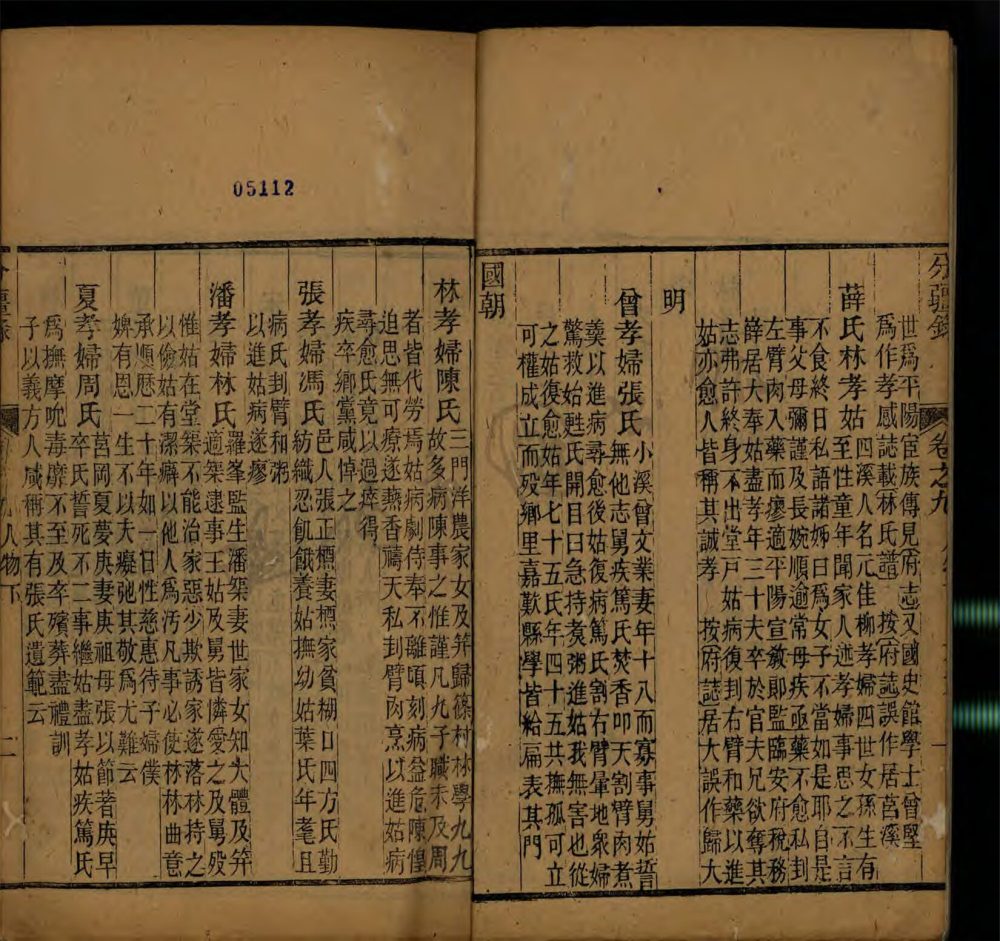 分疆錄
卷之九
一
世爲平陽宦族傳見府志又國史館學士曾堅
爲作孝感誌載林氏譜 按府誌誤作居莒溪
薛氏林孝姑四溪人名元佳柳孝婦四世女孫生有
至性童年聞家人述孝婦事思之不言
不食終日私語諸姊曰爲女子不當如是耶自是
事父母彌謹及長婉順逾常母疾亟藥不愈私刲
左臂肉入藥而瘳適平陽宣敎郎監臨安府稅務
薛居大奉姑盡孝年三十夫卒於官夫兄欲奪其
志弗許終身不出堂戸姑病復刲右臂和藥以進
姑亦愈人皆稱其誠孝 按府誌居大誤作歸大
明
曾孝婦張氏小溪曾文業妻年十八而寡事舅姑誓
無他志舅疾篤氏焚香叩天割臂肉煮
羹以進病尋愈後姑復病篤氏割右臂暈地衆婦
驚救始甦氏開目曰急持羹粥進姑我無害也從
之姑復愈姑年七十五氏年四十五共撫孤可立
可權成立而殁鄉里嘉歎縣學皆給扁表其門
國朝
05112
林孝婦陳氏三門洋農家女及笄歸篠村林學九九
故多病陳事之惟謹凡九子職未及周
者皆代勞焉姑病劇侍奉不離頃刻病益危陳惶
迫思無可療遂爇香禱天私刲臂肉烹以進姑病
尋愈氏竟以過瘁得
疾卒鄉黨咸悼之
張孝婦馮氏邑人張正標妻標家貧糊口四方氏勤
紡織忍飢餓養姑撫幼姑葉氏年耄且
病氏刲臂和粥
以進姑病遂瘳
潘孝婦林氏羅峯監生潘榘妻世家女知大體及笄
適榘逮事王姑及舅皆憐愛之及舅殁
惟姑在堂榘不能治家惡少欺誘家遂落林持之
以儉姑有潔癖以他人爲汚凡事必使林林曲意
承順歷二十年如一日性慈惠待子婦僕
婢有恩一生不以夫癡弛其敬爲尤難云
夏孝婦周氏莒岡夏夢庚妻庚祖母張以節著庚早
卒氏誓死不二事繼姑盡孝姑疾篤氏
爲撫摩吮毒靡不至及卒殯葬盡禮訓
子以義方人咸稱其有張氏遺範云
人物下
二